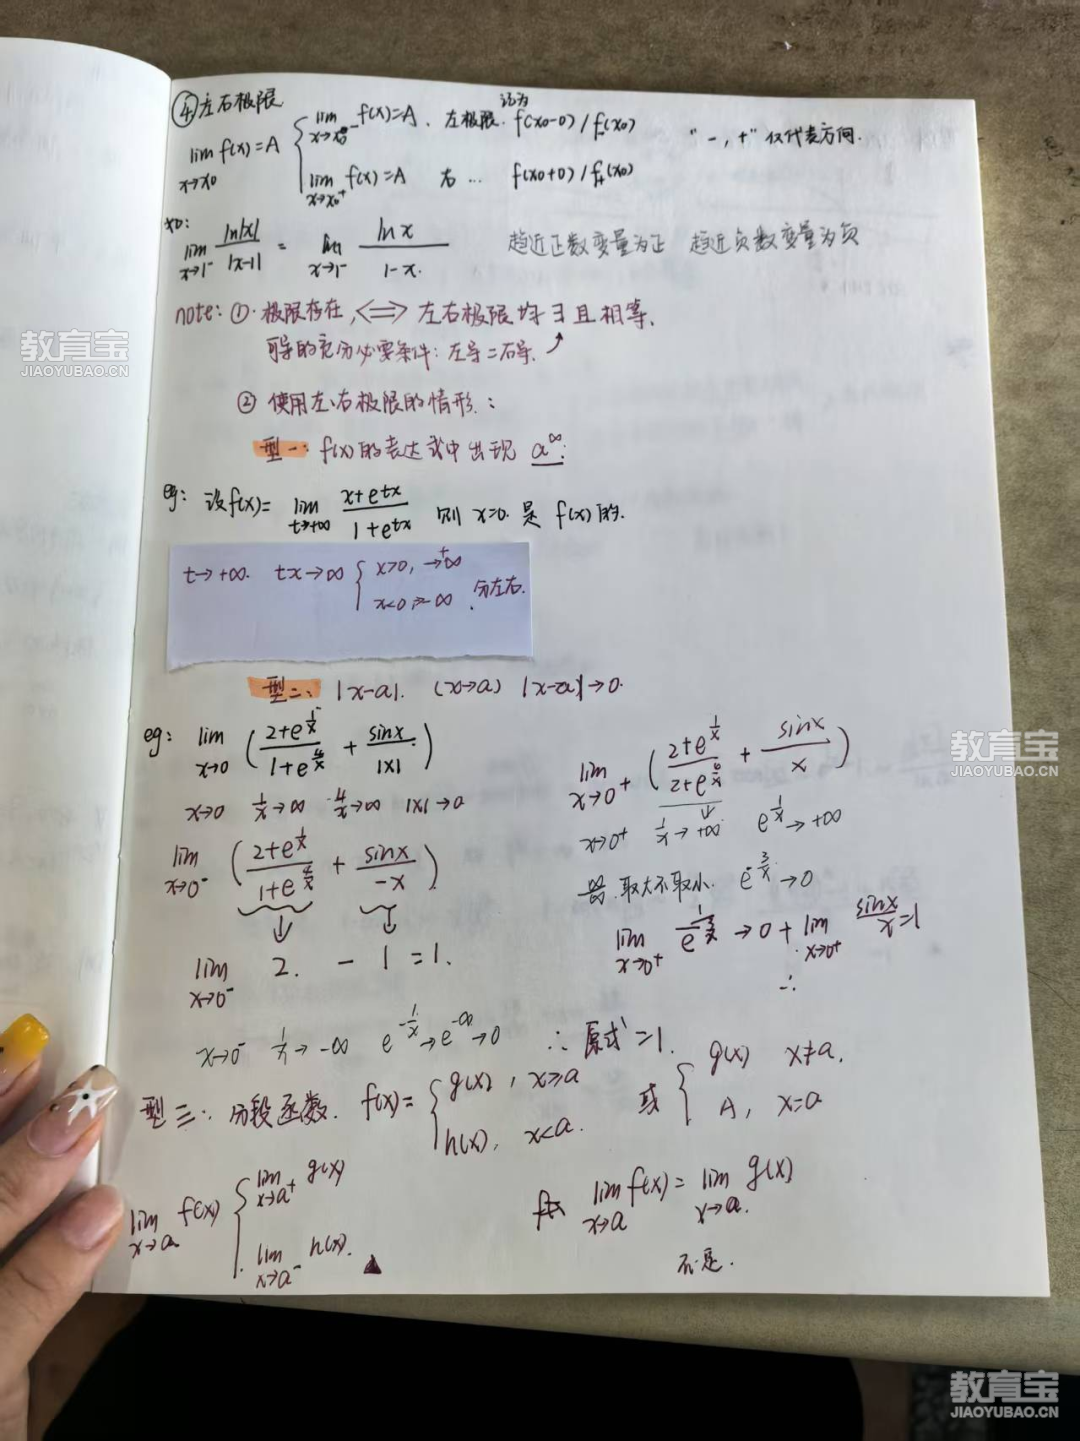 ④左右极限
lim x→x0 f(x)=A { lim x→x0⁻ f(x)=A. 左极限. 记为 f(x0-0)/f-(x0)
lim x→x0⁺ f(x)=A 右… f(x0+0)/f+(x0)
"-,+"仅代表方向.
lim x→1⁻ ln|x|/|x-1| = lim x→1⁻ ln x/1-x.
趋近正数变量为正 趋近负数变量为负
note: ①.极限存在, <=> 左右极限均∃且相等.
可导的充分必要条件: 左导=右导.
② 使用左、右极限的情形.:
型一: f(x)的表达式中出现 a^∞:
eg: 设f(x)= lim t→+∞ x+e^tx/1+e^tx 则 x=0. 是 f(x)的.
t→+∞. tx→∞ { x>0, →+∞
x<0, →-∞. 分左右.
型二: |x-a|. (x→a) |x-a|→0.
eg: lim x→0 (2+e^1/x/1+e^4/x + sinx/|x|)
x→0 1/x→∞ 4/x→∞ |x|→0
lim x→0⁻ (2+e^1/x/1+e^4/x + sinx/-x)
lim x→0⁻ 2. - 1 =1.
x→0⁻ 1/x→-∞ →e^-∞→0
lim x→0⁺ (2+e^1/x/2+e^4/x + sinx/x)
x→0⁺ 1/x→+∞ e^1/x→+∞
取大不取小. e^-3/x→0
lim x→0⁺ 1/e^3/x →0 + lim x→0⁺ sinx/x=1
∴
∴ 原式=1.
型三: 分段函数. f(x)= { g(x), x≥a
h(x), x<a.
或 { g(x) x≠a.
A, x=a
lim x→a f(x) { lim x→a⁺ g(x)
lim x→a⁻ h(x).
lim x→a f(x)= lim x→a. g(x)
教育宝
JIAOYUBAO.CN
教育宝
JIAOYUBAO.CN
教育宝
JIAOYUBAO.CN